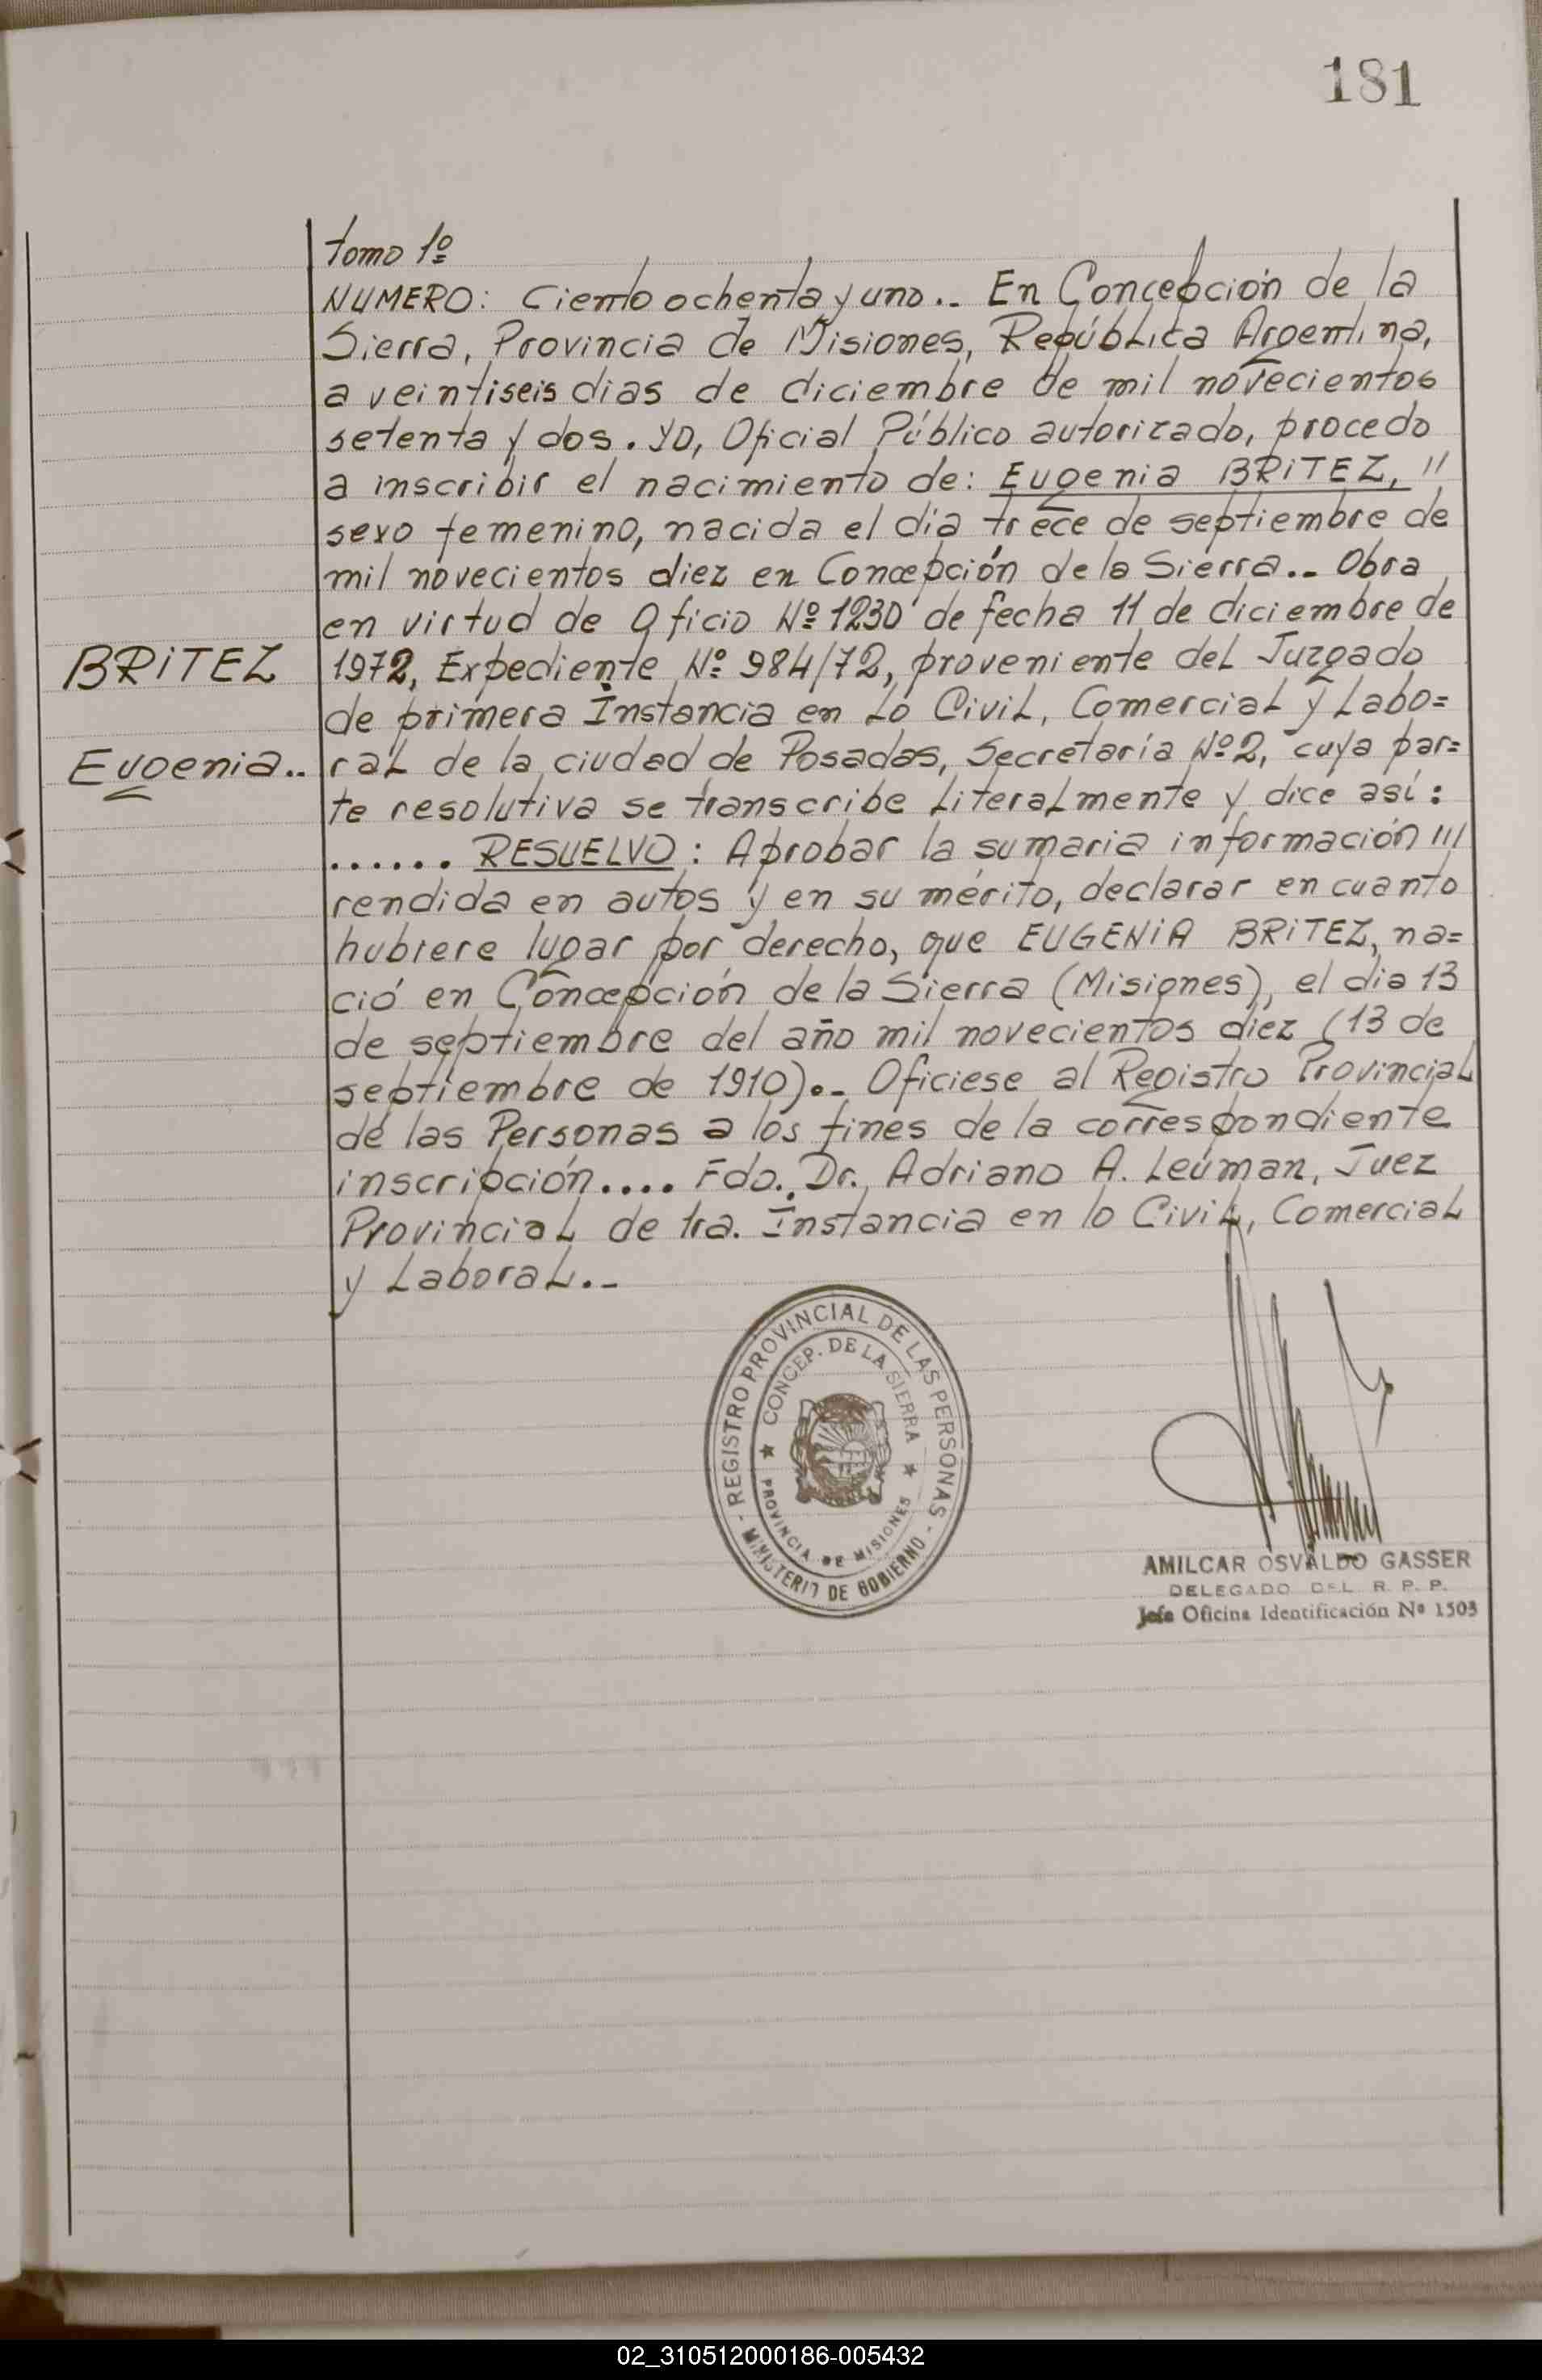 181
tomo 1º
NUMERO: Ciento ochenta y uno.. En Concepción de la
Sierra, Provincia de Misiones, República Argentina,
a veintiseis dias de diciembre de mil novecientos
setenta y dos. Yo, Oficial Público autorizado, procedo
a inscribir el nacimiento de: Eugenia BRITEZ, "
sexo femenino, nacida el día trece de septiembre de
mil novecientos diez en Concepción de la Sierra.. Obra
en virtud de Oficio Nº 1230 de fecha 11 de diciembre de
BRITEZ
1972, Expediente Nº 984/72, proveniente del Juzgado
de primera Instancia en Lo Civil, Comercial y Labo=
Eugenia..
ral de la ciudad de Posadas, Secretaría Nº 2, cuya par=
te resolutiva se transcribe literalmente y dice así:
...... RESUELVO: Aprobar la sumaria información ///
rendida en autos y en su mérito, declarar en cuanto
hubiere lugar por derecho, que EUGENIA BRITEZ, na=
ció en Concepción de la Sierra (Misiones), el dia 13
de septiembre del año mil novecientos diez (13 de
septiembre de 1910).- Oficiese al Registro Provincial
de las Personas a los fines de la correspondiente
inscripción.... Fdo. Dr. Adriano A. Leúman, Juez
Provincial de 1ra. Instancia en lo Civil, Comercial
y Laboral.-
- REGISTRO PROVINCIAL DE LAS PERSONAS -
CONCEP. DE LA SIERRA
PROVINCIA DE MISIONES
MINISTERIO DE GOBIERNO
AMILCAR OSVALDO GASSER
DELEGADO DEL R. P. P.
Jefe Oficina Identificación Nº 1503
02_310512000186-005432